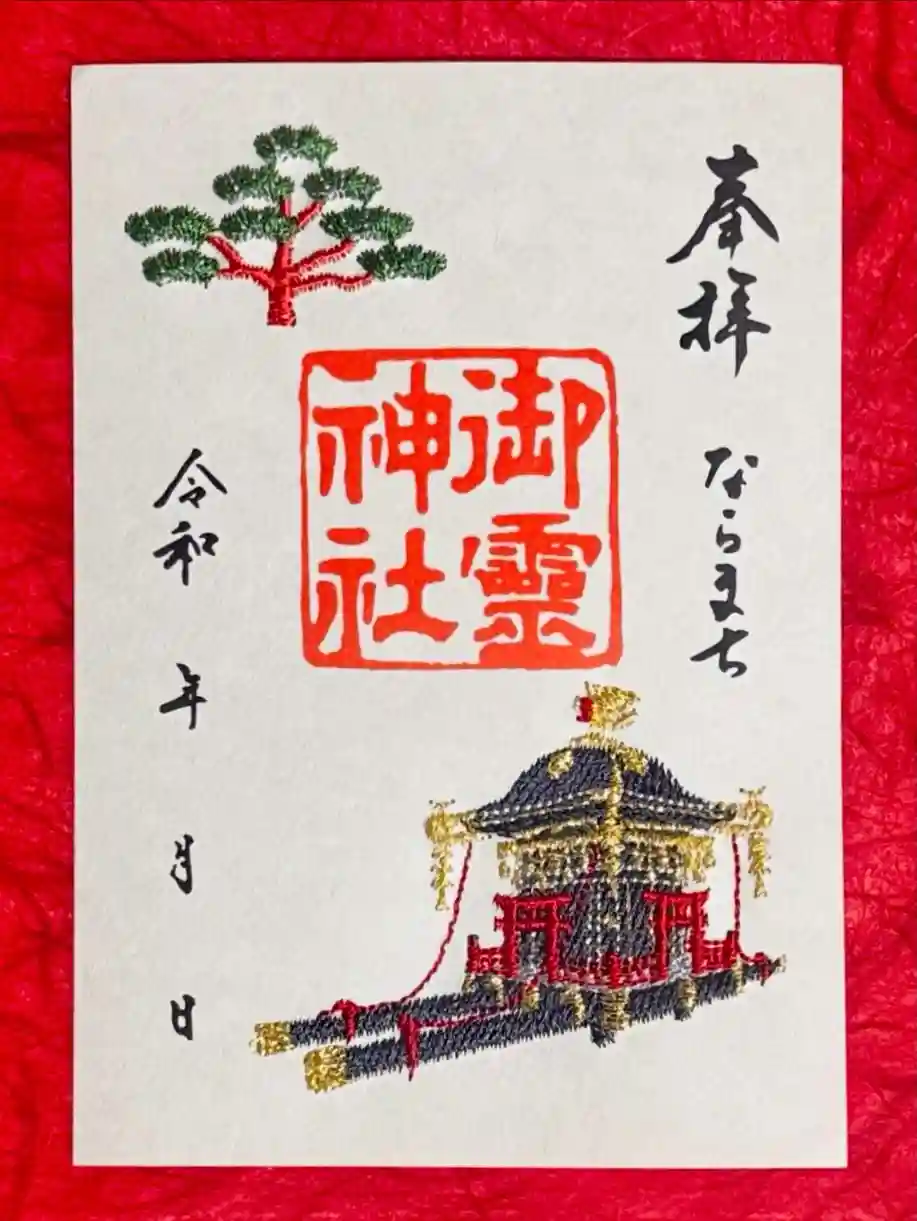 奉拝
ならまち
御靈
神社
令和 年 月 日